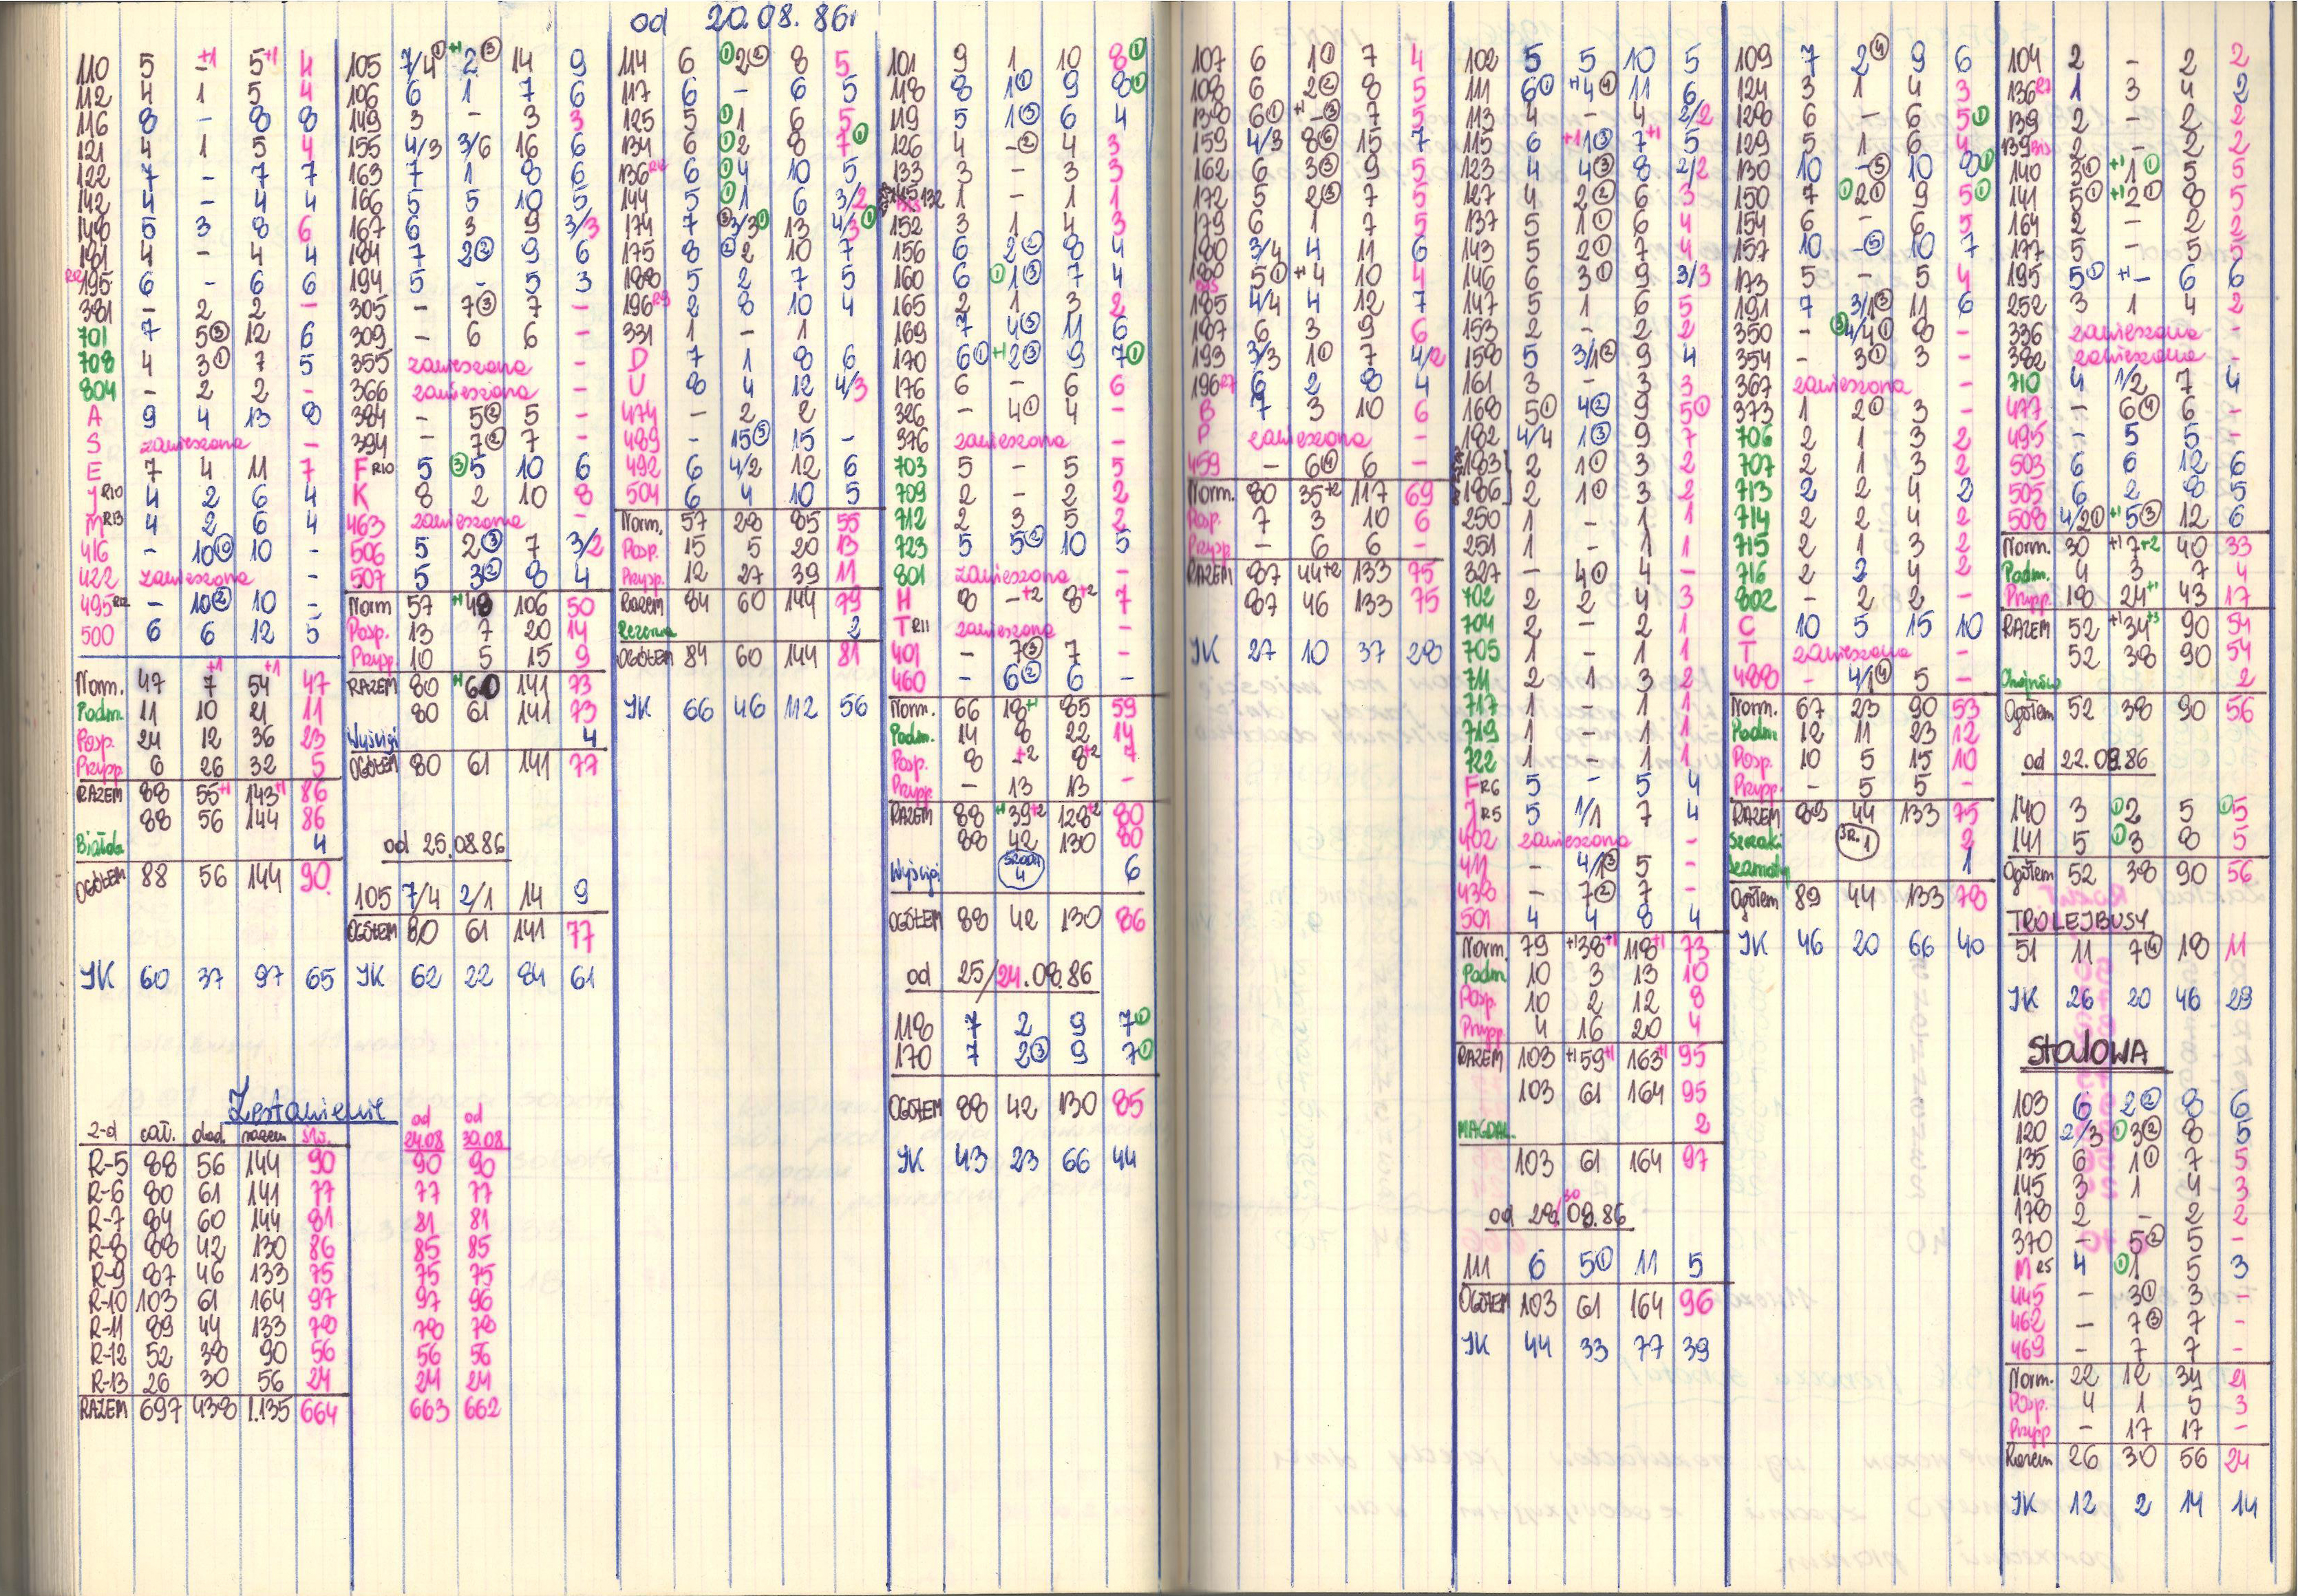 od 20.08.86r
110 5 -+1 5+1 4
112 4 1 5 4
116 8 - 8 8
121 4 1 5 4
122 7 - 7 7
142 4 - 4 4
148 5 3 8 6
181 4 - 4 4
195 6 - 6 6
381 - 2 2 -
701 7 5③ 12 6
708 4 3① 7 5
804 - 2 2 -
A 9 4 13 8
S zawieszona -
E 7 4 11 7
J R10 4 2 6 4
M R13 4 2 6 4
416 - 10 10 -
422 zawieszona -
495 R12 - 10② 10 -
500 6 6 12 5
Norm. 47 7+1 54+1 47
Podm. 11 10 21 11
Posp. 24 12 36 23
Przysp. 6 26 32 5
RAZEM 88 55+1 143+1 86
88 56 144 86
Białoł. 4
OGÓŁEM 88 56 144 90
JK 60 37 97 65
Zestawienie
z-d cał. dod. razem św. od 24.08 od 30.08
R-5 88 56 144 90 90 90
R-6 80 61 141 77 77 77
R-7 84 60 144 81 81 81
R-8 88 42 130 86 85 85
R-9 87 46 133 75 75 75
R-10 103 61 164 97 97 96
R-11 89 44 133 78 78 78
R-12 52 38 90 56 56 56
R-13 26 30 56 24 24 24
RAZEM 697 438 1.135 664 663 662
105 7/4① +1 2③ 14 9
106 6 1 7 6
149 3 - 3 3
155 4/3 3/6 16 6
163 7 1 8 6
166 5 5 10 5
167 6 3 9 3/3
184 7 2② 9 6
194 5 - 5 3
305 - 7③ 7 -
309 - 6 6 -
355 zawieszona -
366 zawieszona -
384 - 5② 5 -
394 - 7② 7 -
F R10 5 ③5 10 6
K 8 2 10 8
463 zawieszona -
506 5 2③ 7 3/2
507 5 3② 8 4
Norm 57 +1 48 106 50
Posp. 13 7 20 14
Przysp. 10 5 15 9
RAZEM 80 +1 60 141 73
80 61 141 73
Wyścigi 4
OGÓŁEM 80 61 141 77
od 25.08.86
105 7/4 2/1 14 9
OGÓŁEM 80 61 141 77
JK 62 22 84 61
114 6 ①2② 8 5
117 6 - 6 5
125 5 ①1 6 5
134 6 ①2 8 7①
136 6 ①4 10 5
144 5 ①1 6 3/2
174 7 ③3/3① 13 4/3①
175 8 ②2 10 7
188 5 2 7 5
196 R9 2 8 10 4
331 1 - 1
D 7 1 8 6
U 8 4 12 4/3
474 - 2 2 -
489 - 15⑤ 15 -
492 6 4/2 12 6
504 6 4 10 5
Norm. 57 28 85 55
Posp. 15 5 20 13
Przysp. 12 27 39 11
Razem 84 60 144 79
Rezerwa 2
OGÓŁEM 84 60 144 81
JK 66 46 112 56
101 9 1 10 8①
118 8 1① 9 8①
119 5 1③ 6 4
126 4 -② 4 3
133 3 - 3 3
132 BIS 1 - 1 1
152 3 1 4 3
156 6 2② 8 4
160 6 ①1③ 7 4
165 2 1 3 2
169 7 4③ 11 6
170 6① +1 2③ 9 7①
176 6 - 6 6
326 - 4① 4 -
376 zawieszona -
703 5 - 5 5
709 2 - 2 2
712 2 3 5 2
723 5 5② 10 5
801 zawieszona -
H 8 -+2 8+2 7
T R11 zawieszona -
401 - 7③ 7 -
460 - 6② 6 -
Norm. 66 18+1 85 59
Podm. 14 8 22 14
Posp. 8 -+2 8+2 7
Przysp. - 13 13 -
RAZEM 88 +1 39+2 128+2 80
88 42 130 80
Wyścigi ŚRODA 4 6
OGÓŁEM 88 42 130 86
od 25/24.08.86
118 7 2 9 7①
170 7 2③ 9 7①
OGÓŁEM 88 42 130 85
JK 43 23 66 44
107 6 1① 7 4
108 6 2② 8 5
138 6① +1 -③ 7 5
159 4/3 8⑥ 15 7
162 6 3③ 9 5
172 5 2③ 7 5
179 6 1 7 5
180 3/4 4 11 6
180 BIS 5① +1 4 10 4
185 4/4 4 12 7
187 6 3 9 6
193 3/3 1① 7 4/2
196 R7 6 2 8 4
B 7 3 10 6
P zawieszona -
459 - 6④ 6 -
Norm. 80 35+2 117 69
Posp. 7 3 10 6
Przysp - 6 6 -
RAZEM 87 44+2 133 75
87 46 133 75
JK 27 10 37 28
102 5 5 10 5
111 6① +1 4④ 11 6
113 4 - 4 2/2
115 6 +1 1③ 7+1 5
123 4 4③ 8 2/2
127 4 2② 6 3
137 5 1① 6 4
143 5 2① 7 4
146 6 3① 9 3/3
147 5 1 6 5
153 2 - 2 2
158 5 3/1② 9 4
161 3 - 3 3
168 5① 4② 9 5①
182 4/4 1③ 9 7
183 2 1① 3 2
186 2 1① 3 2
250 1 - 1 1
251 1 - 1 1
327 - 4① 4 -
702 2 2 4 3
704 2 - 2 1
705 1 - 1 1
711 2 1 3 2
717 1 - 1 1
719 1 - 1 1
722 1 - 1 1
F R6 5 - 5 4
J R5 5 1/1 7 4
402 zawieszona -
411 - 4/1③ 5 -
438 - 7② 7 -
501 4 4 8 4
Norm. 79 +1 38+1 118+1 73
Podm. 10 3 13 10
Posp. 10 2 12 8
Przysp. 4 16 20 4
RAZEM 103 +1 59+1 163+1 95
103 61 164 95
MAGDAL. 2
103 61 164 97
od 29/30.08.86
111 6 5① 11 5
OGÓŁEM 103 61 164 96
JK 44 33 77 39
109 7 2④ 9 6
124 3 1 4 3
128 6 - 6 5①
129 5 1 6 4
130 10 -⑤ 10 8①
150 7 ①2① 9 5①
154 6 - 6 5
157 10 -⑤ 10 7
173 5 - 5 4
191 7 3/1③ 11 6
350 - ③4/4① 8 -
354 - 3① 3 -
367 zawieszona -
373 1 2① 3 -
706 2 1 3 2
707 2 1 3 2
713 2 2 4 2
714 2 2 4 2
715 2 1 3 2
716 2 2 4 2
802 - 2 2 -
C 10 5 15 10
T zawieszona -
488 - 4/1④ 5 -
Norm. 67 23 90 53
Podm 12 11 23 12
Posp 10 5 15 10
Przysp. - 5 5 -
RAZEM 89 44 133 75
Szczaki 2
1
Ogółem 89 44 133 78
JK 46 20 66 40
104 2 - 2 2
136 R7 1 3 4 2
139 2 - 2 2
139 BIS 2 - 2 2
140 3① +1 1① 5 5
141 5① +1 2① 8 5
164 2 - 2 2
177 5 - 5 5
195 5① +1 - 6 6
252 3 1 4 2
336 zawieszona -
382 zawieszona -
710 4 1/2 7 4
477 - 6④ 6 -
495 - 5 5 -
503 6 6 12 6
505 6 2 8 5
508 4/2① +1 5③ 12 6
Norm. 30 +1 7+2 40 33
Podm. 4 3 7 4
Przysp. 18 24+1 43 17
RAZEM 52 +1 34+3 90 54
52 38 90 54
Chojnów 2
Ogółem 52 38 90 56
od 22.08.86
140 3 ①2 5 ①5
141 5 ①3 8 5
Ogółem 52 38 90 56
TROLEJBUSY
51 11 7④ 18 11
JK 26 20 46 29
StalOWA
103 6 2② 8 6
120 2/3 ①3② 8 5
135 6 1① 7 5
145 3 1 4 3
178 2 - 2 2
370 - 5② 5 -
M R5 4 ①1 5 3
445 - 3① 3 -
462 - 7③ 7 -
469 - 7 7 -
Norm. 22 12 34 21
Posp. 4 1 5 3
Przysp - 17 17 -
Razem 26 30 56 24
JK 12 2 14 14